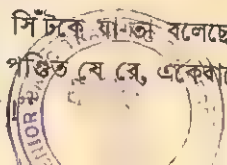 সিঁটকে যা-তা বলেছে
পণ্ডিত যে রে, একেবারে